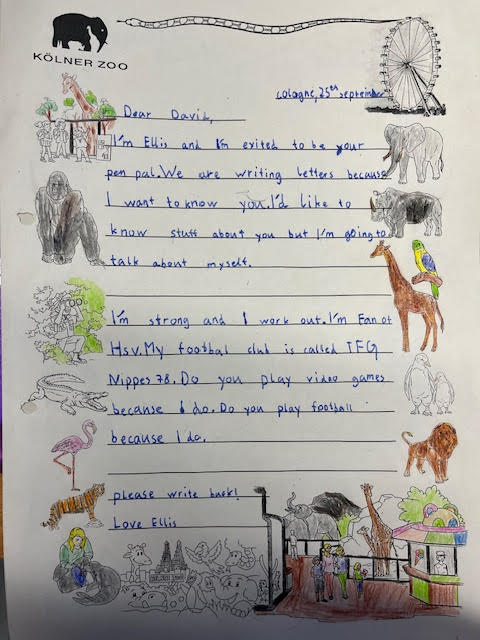 KÖLNER ZOO
Cologne, 25th September
Dear David,
I'm Ellis and I'm exited to be your
pen pal. We are writing letters because
I want to know you. I'd like to
know stuff about you but I'm going to
talk about myself.
I'm strong and I work out. I'm Fan of
Hsv. My footbal club is called TFG
Nippes 78. Do you play video games
because I do. Do you play football
because I do.
please write back!
Love Ellis